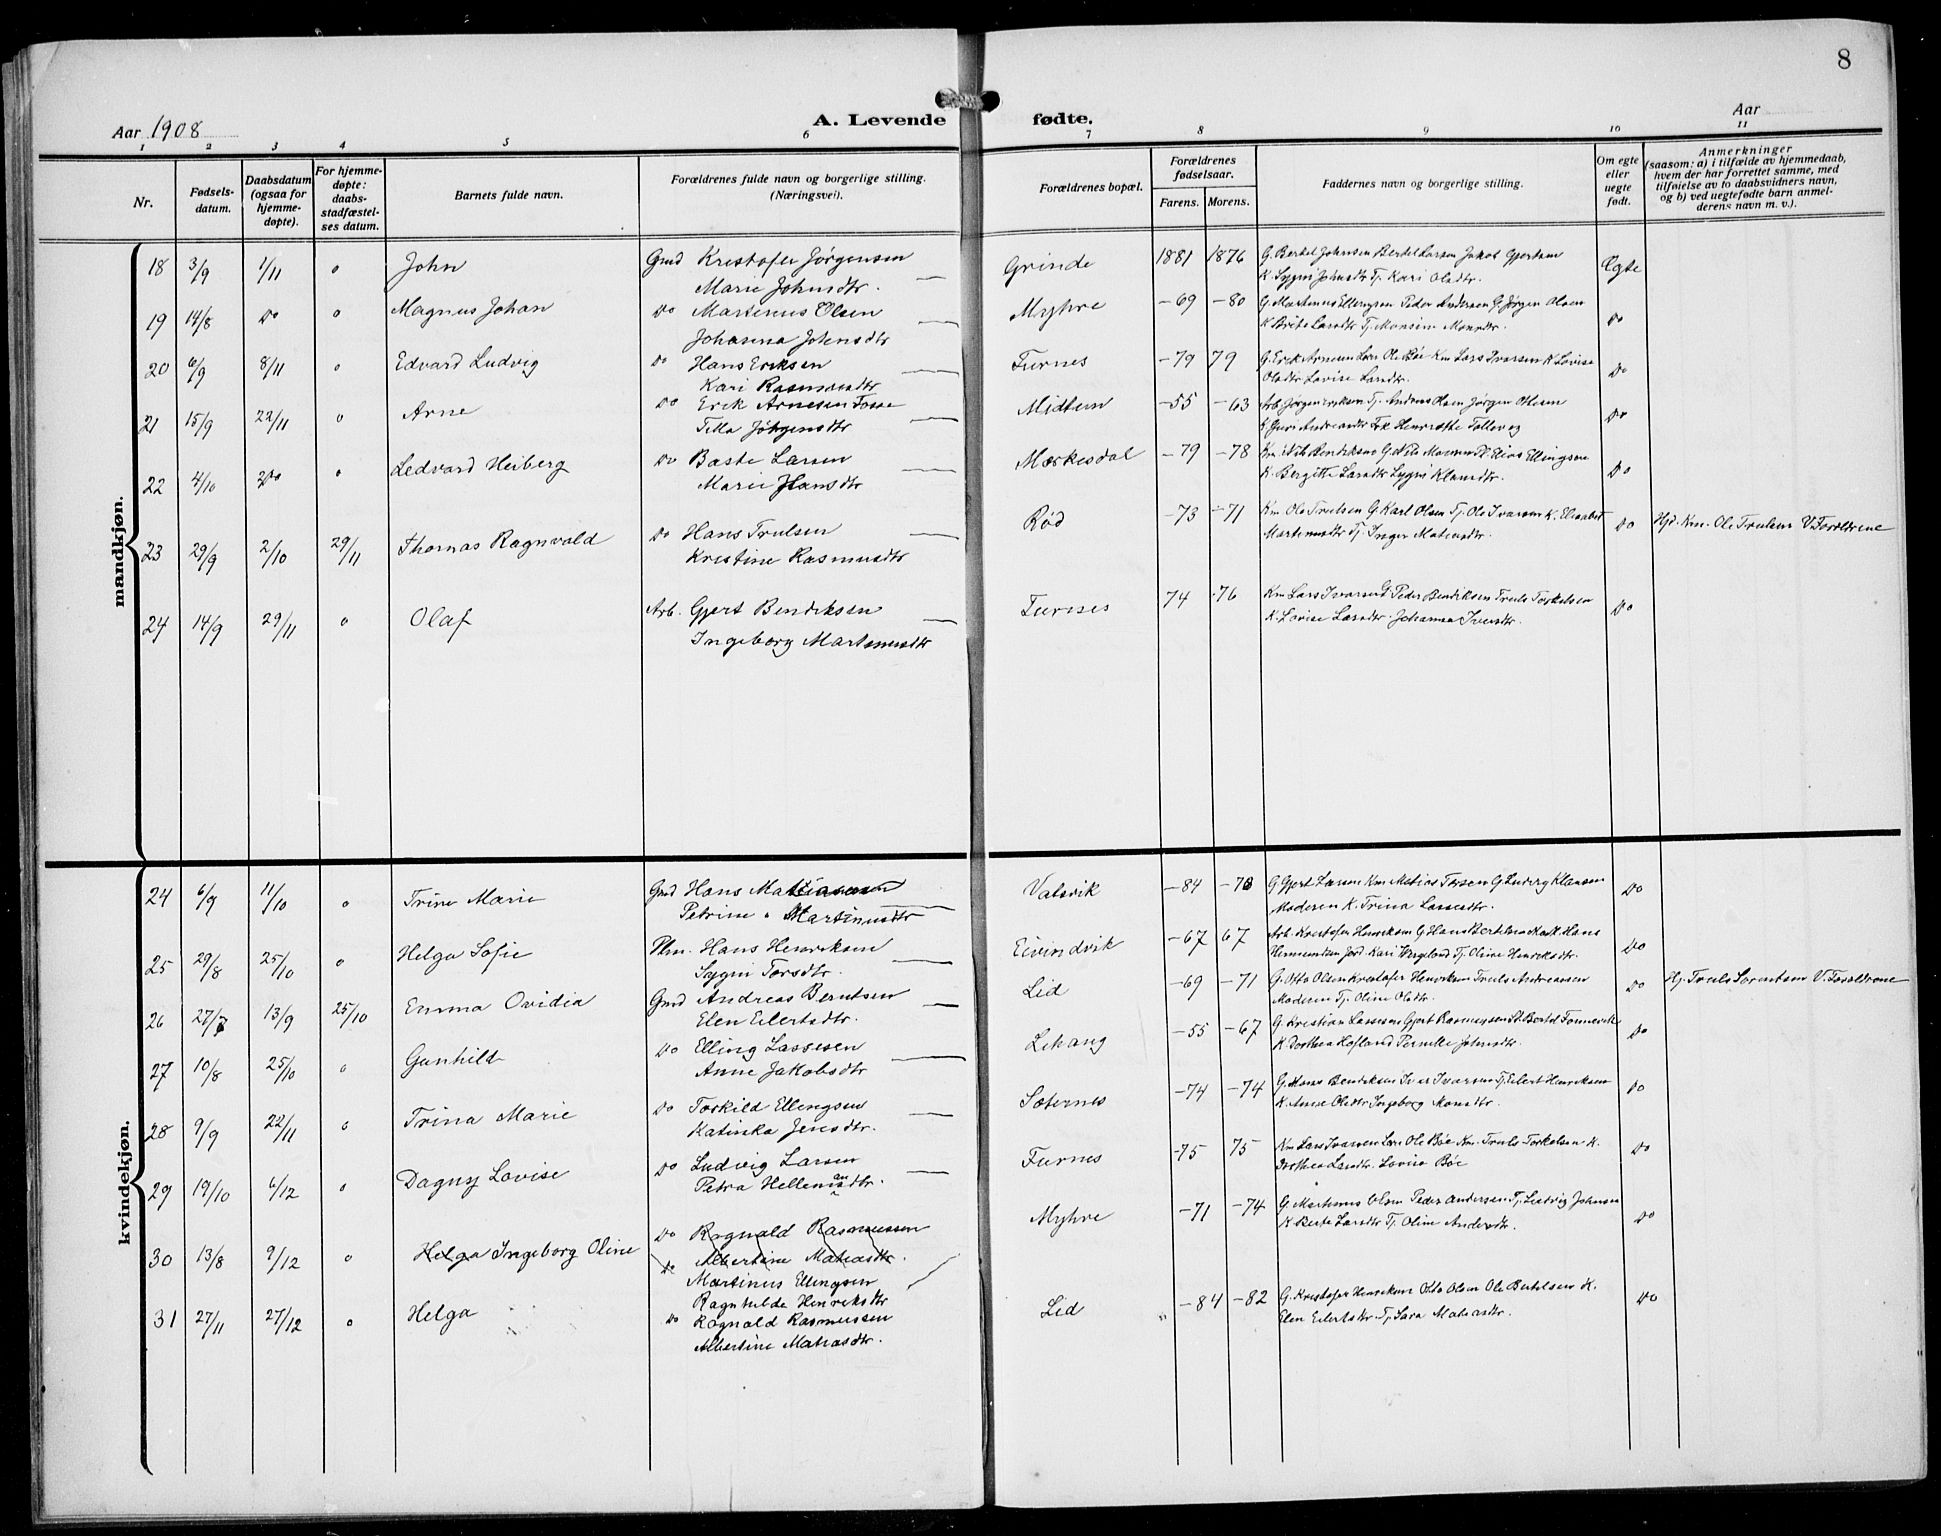 8
Aar 1908
A. Levende fødte.
Aar
1 2 3 4 5 6 7 8 9 10 11
Nr.
Fødsels-
datum.
Daabsdatum
(ogsaa for
hjemme-
døpte).
For hjemme-
døpte:
daabs-
stadfæstel-
ses datum.
Barnets fulde navn.
Forældrenes fulde navn og borgerlige stilling.
(Næringsvei).
Forældrenes bopæl.
Forældrenes
fødselsaar.
Farens. Morens.
Faddernes navn og borgerlige stilling.
Om egte
eller
uegte
født.
Anmerkninger
(saasom: a) i tilfælde av hjemmedaab,
hvem der har forrettet samme, med
tilføielse av to daabsvidners navn,
og b) ved uegtefødte barn anmel-
derens navn m. v.).
mandkjøn.
18 3/9 1/11 o John Gmd Kristofer Jørgensen Grinde 1881 1876 G. Bertel Johnsen Bertel Larsen Jakob Gjertsen Egte
Marie Johnsdtr. K. Sygni Johnsdtr Tj. Kari Olsdtr.
19 14/8 Do o Magnus Johan Do Martinus Olsen Myhre -69 -80 G. Martinus Ellingsen Peder Andersen G. Jørgen Olsen Do
Johanna Johnsdtr K. Brite Larsdtr Tj. Monsine Monsdtr.
20 6/9 8/11 o Edvard Ludvig Do Hans Eriksen Furnes -79 79 G. Erik Arnesen Lær. Ole Bøe Km Lars Ivarsen K. Lovise Do
Kari Rasmusdtr Olsdtr Lovise Larsdtr.
21 15/9 22/11 o Arne Do Erik Arnesen Fosse Midtun -55 -63 Arb. Jørgen Eriksen Tj. Andreas Olsen Jørgen Olsen Do
Tilla Jørgensdtr K. Guri Andreasdtr Frk Henriette Tollevog
22 4/10 Do o Ledvard Heiberg Do Baste Larsen Mærkesdal -79 -78 Elias Ellingsen Do
Marie Hansdtr K. Bergitte Larsdtr Sygni Klausdtr.
23 29/9 2/10 29/11 Thomas Ragnvald Do Hans Trulsen Rød -73 -71 Km Ole Trulsen G. Karl Olsen Tj. Ole Ivarsen K. Elisabet Do Hjd. Km. Ole Trulsen V. Foreldrene
Kristine Rasmusdtr Martinusdtr Tj. Inger Matiasdtr.
24 14/9 29/11 o Olaf Arb. Gjert Bendiksen Furnes 74 -76 Km Lars Ivarsen G. Peder Bendiksen Truls Torkelsen Do
Ingeborg Martinusdtr K. Lovise Larsdtr. Johanna Iversdtr.
kvindekjøn.
24 6/9 11/10 o Trine Marie Gmd Hans Matiasen Vatsvik -84 -78 G. Gjert Larsen Km Matias Torsen G. Ludvig Klausen Do
Petrine Martinusdtr Moderen K. Trina Lassesdtr.
25 29/8 25/10 o Helga Sofie Plm. Hans Henriksen Eivindvik -67 67 Arb. Kristofer Henriksen G. Hans Bertelsen Hans Do
Sygni Torsdtr. Jord. Kari Vergelund Tj. Oline Henriksdtr.
26 27/7 13/9 25/10 Emma Ovidia Gmd Andreas Berntsen Lid -69 -71 G. Otto Olsen Kristofer Henriksen Truls Andreassen Do Hj. Truls Sørensen V. Foreldrene
Elen Eilertsdtr. Moderen Tj. Oline Olsdtr.
27 10/8 25/10 o Gunhild Do Elling Lassesen Lihaug -55 -67 G. Kristian Lassesen Gjert Rasmussen Bertel Fonnevik Do
Anne Jakobsdtr K. Dorthea Hofland Pernille Johnsdtr.
28 9/9 22/11 o Trina Marie Do Torkild Ellingsen Sæternes -74 -74 G. Mons Bendiksen Iver Ivarsen Tj. Eilert Henriksen Do
Katinka Jensdtr. K. Anne Olsdtr Ingeborg Monsdtr.
29 19/10 6/12 o Dagny Lovise Do Ludvig Larsen Furnes -75 75 Km Lars Ivarsen Lær. Ole Bøe Km. Truls Torkelsen K. Do
Petra Hellemansdtr. Dorthea Larsdtr. Lovise Bøe
30 13/8 9/12 o Helga Ingeborg Oline Do Ragnald Rasmussen Myhre -71 -74 G. Martinus Olsen Peder Andersen Tj. Ludvig Johnsen Do
Albertine Matiasdtr. K. Berte Larsdtr Tj. Oline Andersdtr.
Do Martinus Ellingsen
Ragnhilde Henriksdtr
31 27/11 27/12 o Helga Do Ragnald Rasmussen Lid -84 -82 G. Kristofer Henriksen Otto Olsen Ole Bertelsen K. Do
Albertine Matiasdtr. Elen Eilertsdtr. Tj. Sara Matiasdtr.